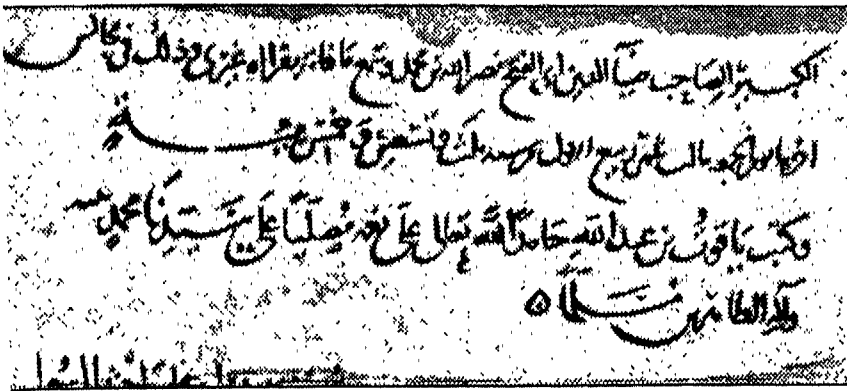 الكبير الصاحب ضيآ الدين ابو الفتح نصر الله بن محمد وسمع ما فاته بقراءة غيري وذلك في مجالس
اخرها يوم الجمعة ثالث عشر ربيع الاول سنه ثلث وتسعين وخمس مائة
وكتب ياقوت بن عبد الله حامدا لله تعالى على نعمه ومصليا على سيدنا محمد نبيه
وآله الطاهرين ومسلما ٥